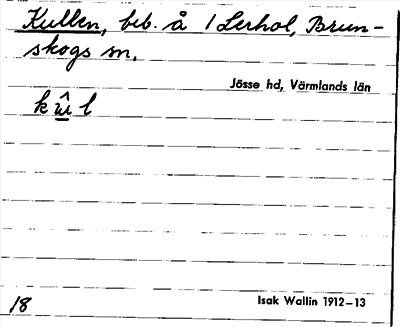 Kullen, beb. å 1 Lerhol, Brun-
skogs sn.
Jösse hd, Värmlands län
18
Isak Wallin 1912–13